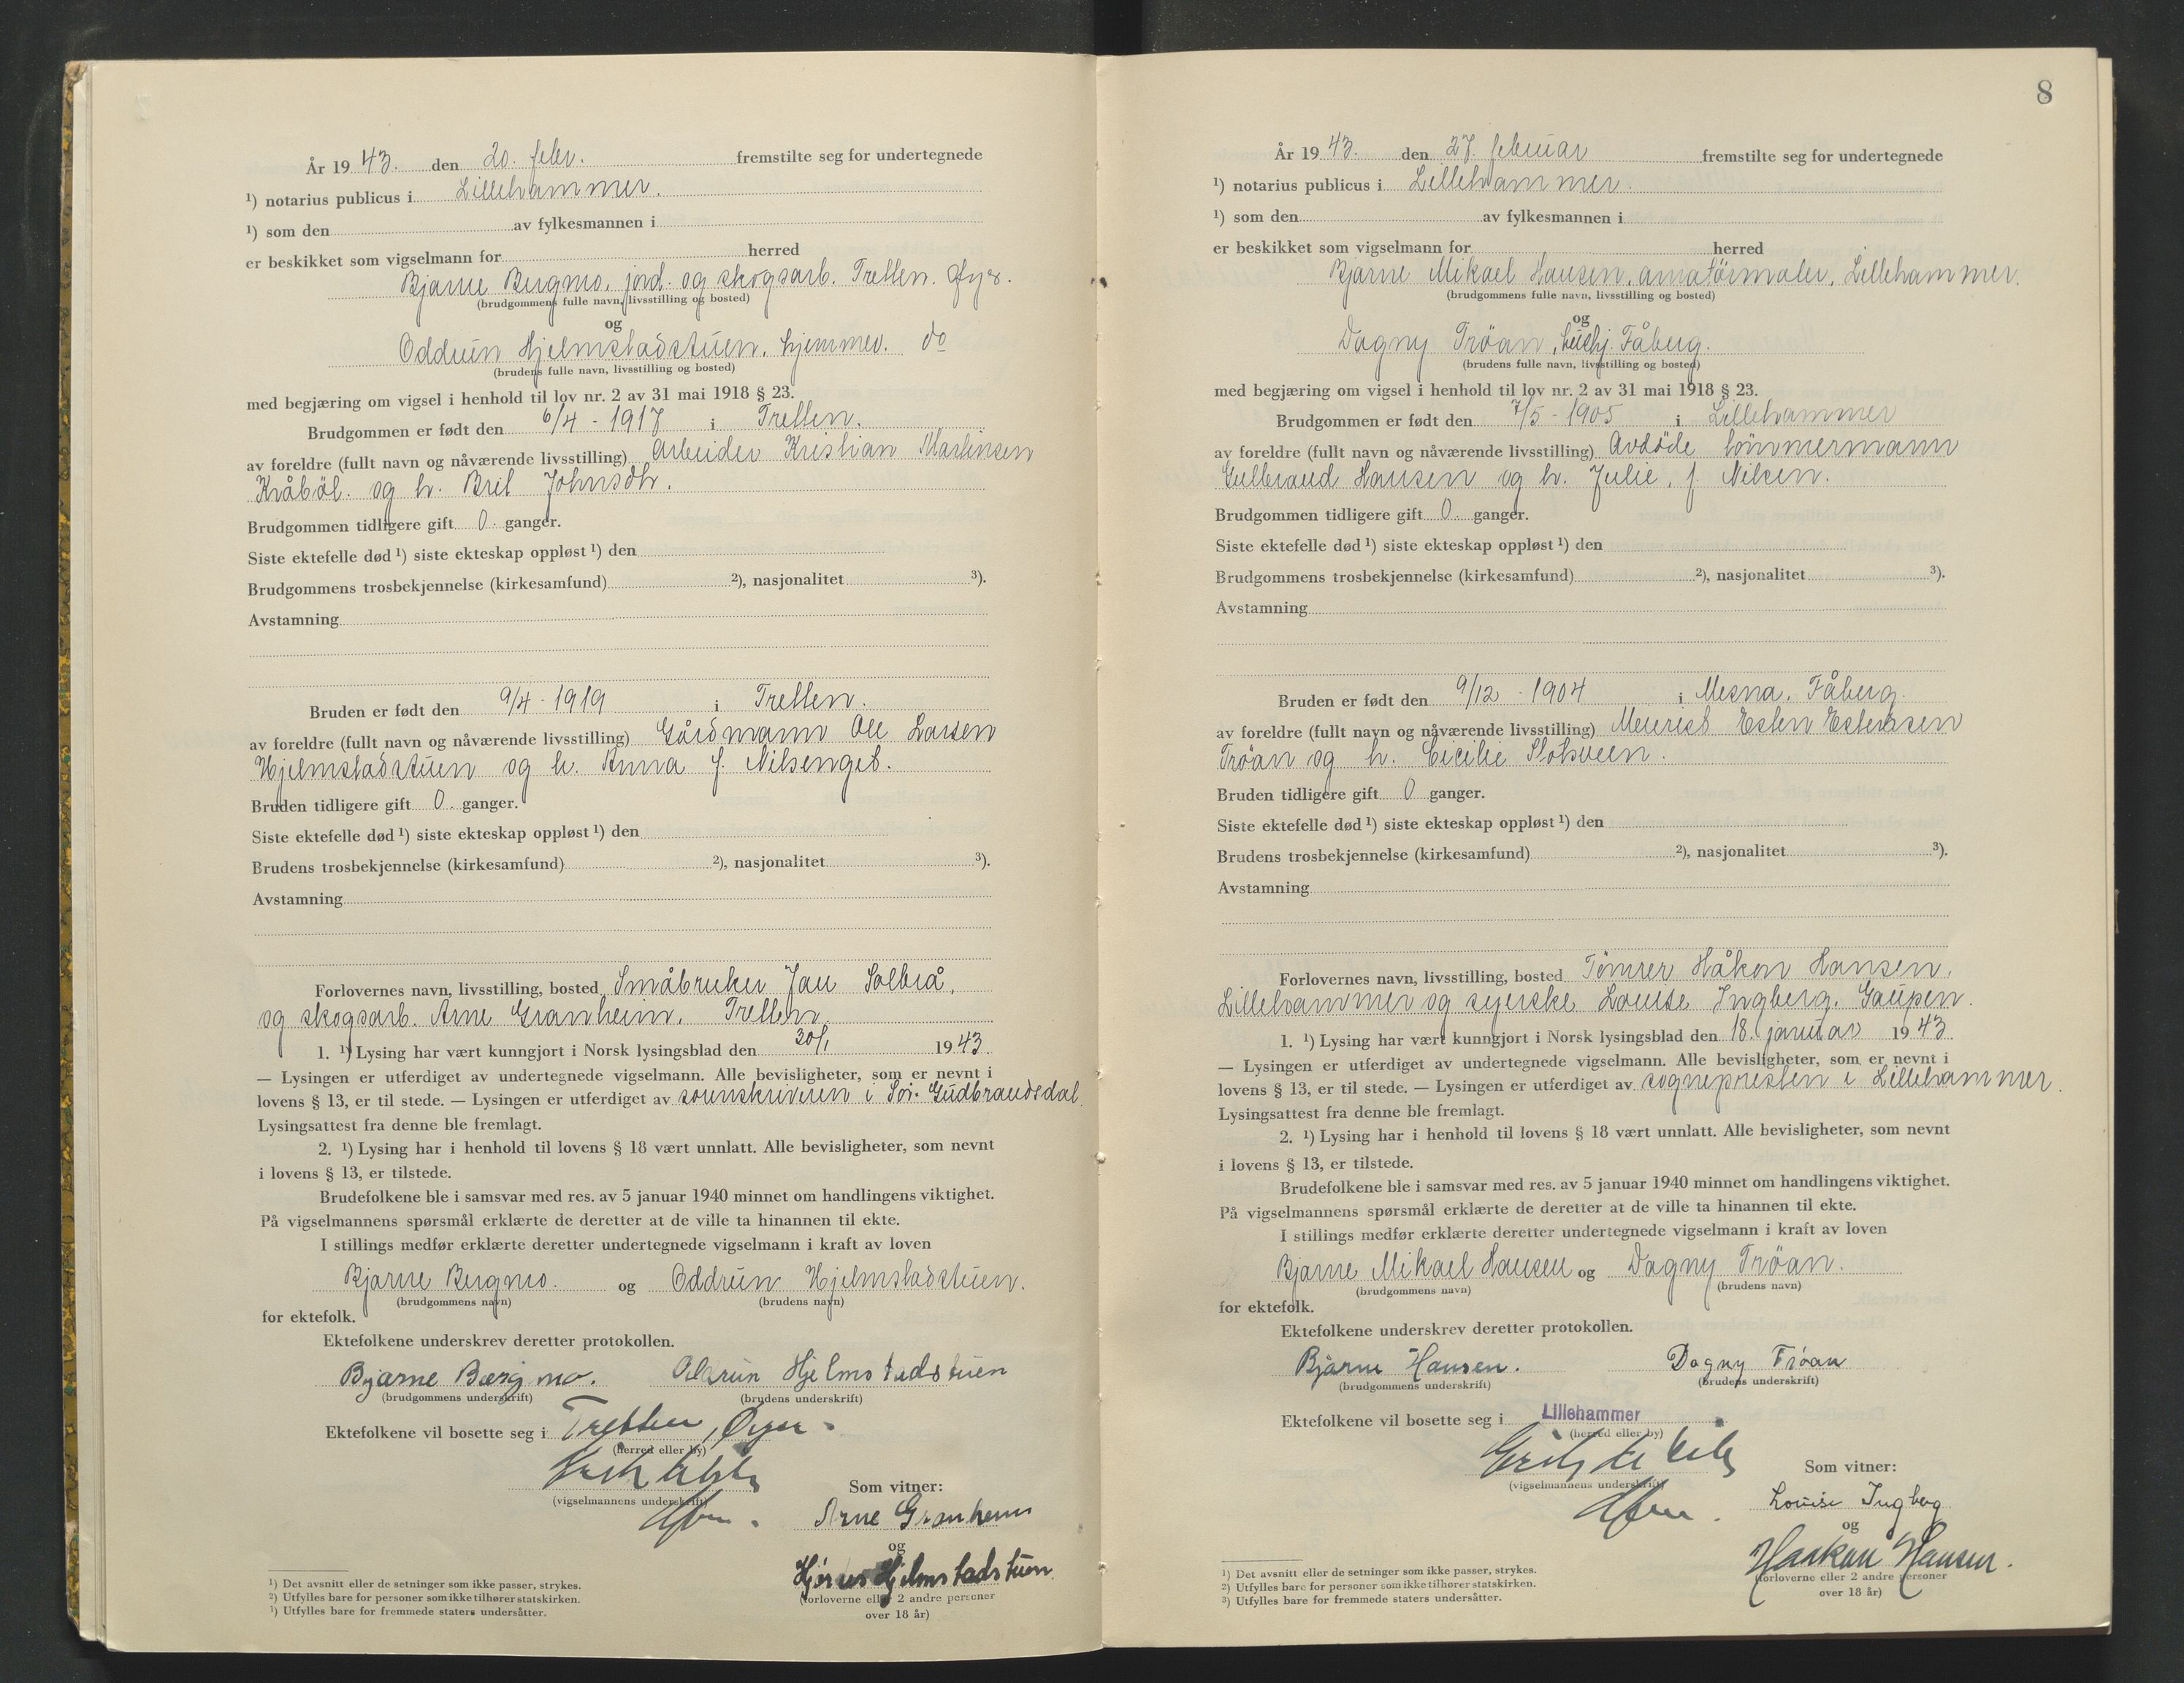 År 1943. den 20. febr. fremstilte seg for undertegnede
¹) notarius publicus i Lillehammer.
¹) som den av fylkesmannen i
er beskikket som vigselmann for herred
Bjarne Bergmo, jord- og skogsarb. Tretten. Øyer.
(brudgommens fulle navn, livsstilling og bosted)
og
Oddrun Hjelmstadstuen, hjemmev. do
(brudens fulle navn, livsstilling og bosted)
med begjæring om vigsel i henhold til lov nr. 2 av 31 mai 1918 § 23.
Brudgommen er født den 6/4 - 1917 i Tretten.
av foreldre (fullt navn og nåværende livsstilling) Arbeider Kristian Martinsen
Kråböl. og h. Brit Johnsdtr.
Brudgommen tidligere gift 0. ganger.
Siste ektefelle død ¹) siste ekteskap oppløst ¹) den
Brudgommens trosbekjennelse (kirkesamfund) ²), nasjonalitet ³).
Avstamning
Bruden er født den 9/4 - 1919 i Tretten.
av foreldre (fullt navn og nåværende livsstilling) Gårdmann Ole Larsen
Hjelmstadstuen og h. Anna f. Nilsenget.
Bruden tidligere gift 0. ganger.
Siste ektefelle død ¹) siste ekteskap oppløst ¹) den
Brudens trosbekjennelse (kirkesamfund) ²), nasjonalitet ³).
Avstamning
Forlovernes navn, livsstilling, bosted Småbruker Jan Solbrå,
og skogsarb. Arne Granheim, Tretten.
1. ¹) Lysing har vært kunngjort i Norsk lysingsblad den 30/1 1943.
— Lysingen er utferdiget av undertegnede vigselmann. Alle bevisligheter, som er nevnt i
lovens § 13, er til stede. — Lysingen er utferdiget av sorenskriveren i Sør-Gudbrandsdal
Lysingsattest fra denne ble fremlagt.
2. ¹) Lysing har i henhold til lovens § 18 vært unnlatt. Alle bevisligheter, som nevnt
i lovens § 13, er tilstede.
Brudefolkene ble i samsvar med res. av 5 januar 1940 minnet om handlingens viktighet.
På vigselmannens spørsmål erklærte de deretter at de ville ta hinannen til ekte.
I stillings medfør erklærte deretter undertegnede vigselmann i kraft av loven
Bjarne Bergmo. og Oddrun Hjelmstadstuen.
(brudgommens navn) (brudens navn)
for ektefolk.
Ektefolkene underskrev deretter protokollen.
Bjarne Bergmo. Oddrun Hjelmstadstuen
(brudgommens underskrift) (brudens underskrift)
Ektefolkene vil bosette seg i Tretten, Øyer.
(herred eller by)
(vigselmannens underskrift)
Som vitner:
Arne Granheim
og
Hjelmstadstuen
(forloverne eller 2 andre personer
over 18 år)
¹) Det avsnitt eller de setninger som ikke passer, strykes.
²) Utfylles bare for personer som ikke tilhører statskirken.
³) Utfylles bare for fremmede staters undersåtter.
8
År 1943. den 27. februar fremstilte seg for undertegnede
¹) notarius publicus i Lillehammer.
¹) som den av fylkesmannen i
er beskikket som vigselmann for herred
Bjarne Mikael Hansen, amatørmaler, Lillehammer.
(brudgommens fulle navn, livsstilling og bosted)
og
Dagny Tröan, hushj. Fåberg.
(brudens fulle navn, livsstilling og bosted)
med begjæring om vigsel i henhold til lov nr. 2 av 31 mai 1918 § 23.
Brudgommen er født den 7/5 - 1905 i Lillehammer
av foreldre (fullt navn og nåværende livsstilling) Avdöde tömmermann
Gulbrand Hansen og h. Julie, f. Nilsen.
Brudgommen tidligere gift 0. ganger.
Siste ektefelle død ¹) siste ekteskap oppløst ¹) den
Brudgommens trosbekjennelse (kirkesamfund) ²), nasjonalitet ³).
Avstamning
Bruden er født den 9/12 - 1904 i Mesna, Fåberg.
av foreldre (fullt navn og nåværende livsstilling) Meierist Esten Estensen
Tröan og h. Cicilie Slotsveen.
Bruden tidligere gift 0 ganger.
Siste ektefelle død ¹) siste ekteskap oppløst ¹) den
Brudens trosbekjennelse (kirkesamfund) ²), nasjonalitet ³).
Avstamning
Forlovernes navn, livsstilling, bosted Tömrer Håkon Hansen,
Lillehammer og syerske Louise Ingberg, Gaupen.
1. ¹) Lysing har vært kunngjort i Norsk lysingsblad den 18. januar 1943.
— Lysingen er utferdiget av undertegnede vigselmann. Alle bevisligheter, som er nevnt i
lovens § 13, er til stede. — Lysingen er utferdiget av sognepresten i Lillehammer.
Lysingsattest fra denne ble fremlagt.
2. ¹) Lysing har i henhold til lovens § 18 vært unnlatt. Alle bevisligheter, som nevnt
i lovens § 13, er tilstede.
Brudefolkene ble i samsvar med res. av 5 januar 1940 minnet om handlingens viktighet.
På vigselmannens spørsmål erklærte de deretter at de ville ta hinannen til ekte.
I stillings medfør erklærte deretter undertegnede vigselmann i kraft av loven
Bjarne Mikael Hansen og Dagny Tröan.
(brudgommens navn) (brudens navn)
for ektefolk.
Ektefolkene underskrev deretter protokollen.
Bjarne Hansen. Dagny Tröan
(brudgommens underskrift) (brudens underskrift)
Ektefolkene vil bosette seg i Lillehammer
(herred eller by)
(vigselmannens underskrift)
Som vitner:
Louise Ingberg
og
Haakon Hansen.
(forloverne eller 2 andre personer
over 18 år)
¹) Det avsnitt eller de setninger som ikke passer, strykes.
²) Utfylles bare for personer som ikke tilhører statskirken.
³) Utfylles bare for fremmede staters undersåtter.